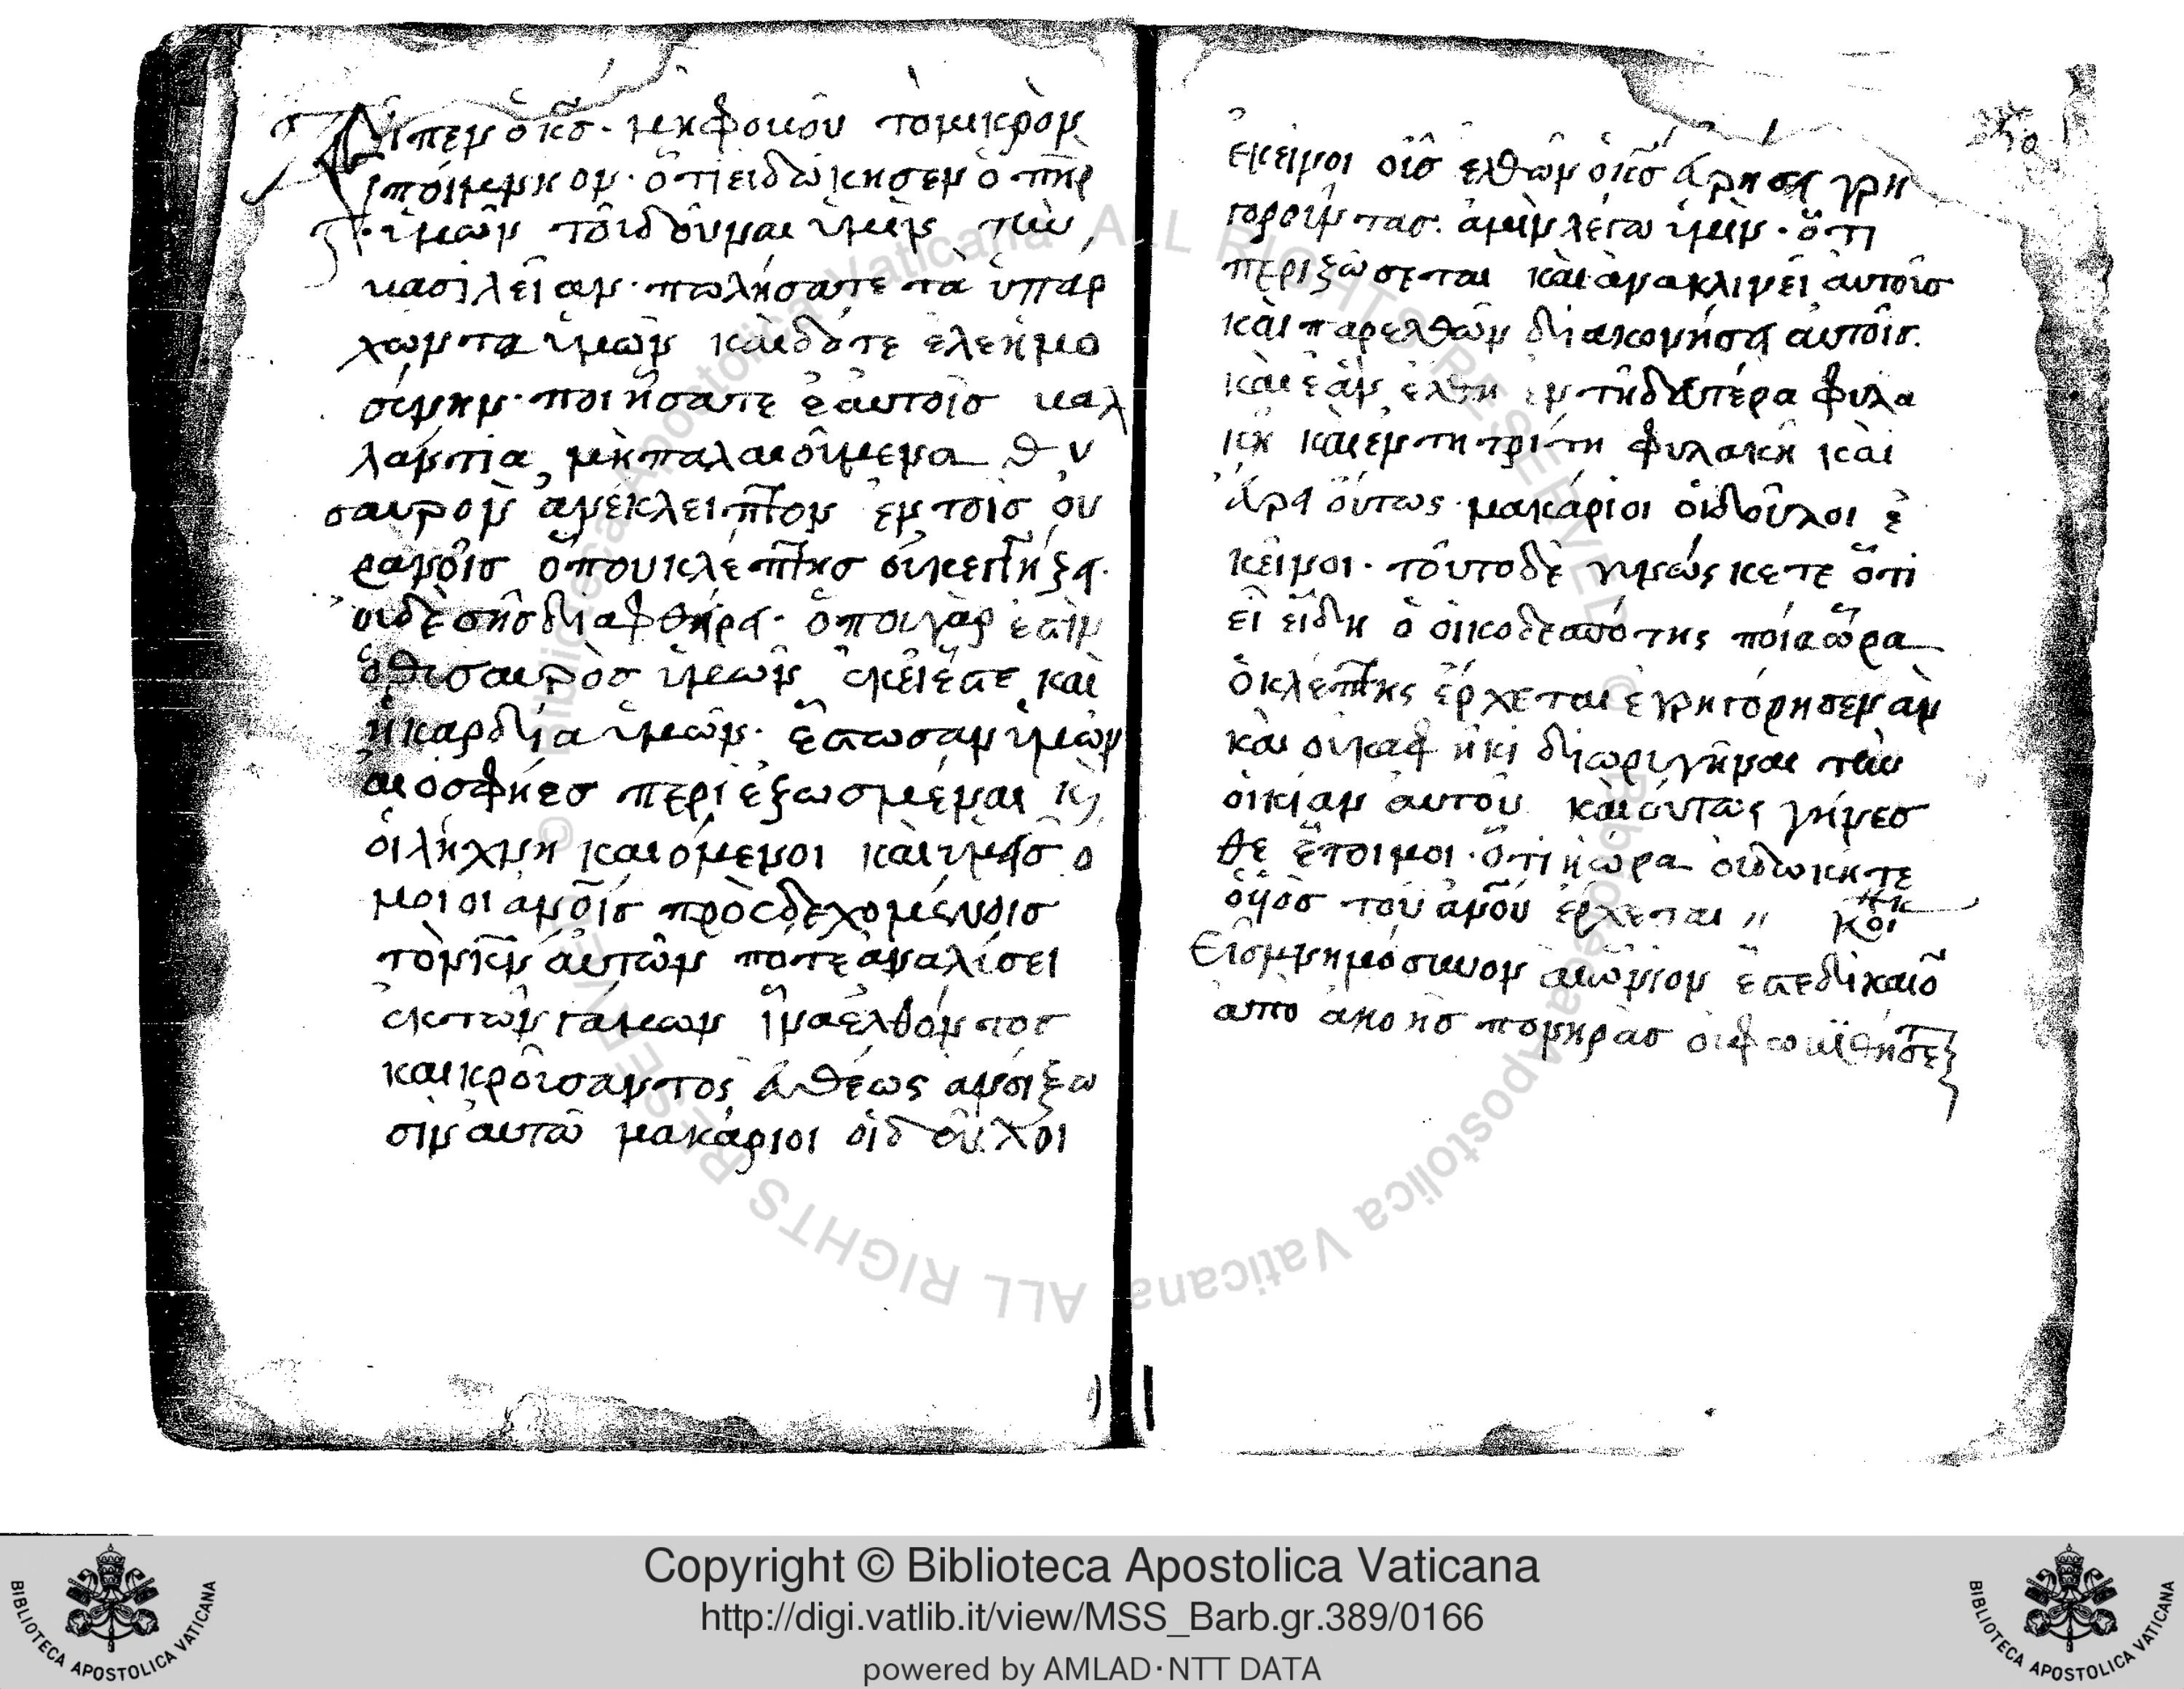 Εἶπεν ὁ κ̅ς̅· μὴ φοβοῦ τὸ μικρὸν
ποίμνηον· ὅτι εἰδώκησεν ὁ π̅η̅ρ̅
ἡμῶν τοῖ δοῦναι ὑμὶν τὴν
βασιλεῖαν· πωλήσατε τὰ ὑπαρ
χωντα ὑμῶν καὶ δότε ἐλεήμο
σίνην· ποιήσατε ἑαυτοῖσ βαλ
λάντια μὴ παλαιοῦμενα θυ
σαυρὸν ἀνέκλειπτον ἐν τοῖσ οὐ
ρανοῖσ ὅπου κλέπτησ οὐκ ἐγγήζει·
οὐδὲ σῆσ διαφθήρει· ὅπου γὰρ ἐστὶν
ὁ θισαυρὸσ ὑμῶν ἐκεῖ ἔστε καὶ
ἡ καρδία ὑμῶν· ἔστωσαν ὑμῶν
αἱ ὀσφήεσ περιεξωσμέναι κ
οἱ λήχνη καιόμενοι καὶ ὑμεῖσ ὅ
μοιοι ἀν̅ο̅ῖσ προσδεχομένοισ
τὸν κ̅ν̅ αὐτῶν πότε ἀναλίσει
ἐκ τῶν γάμων ἵνα ἐλθόντοσ
και κροῦσαντος εὐθέως ἀνοίξω
σιν αὐτῶ μακάριοι οἱ δοῦλοι
ἐκεῖνοι οἷσ ελθὼν ὁ κ̅ς̅ εὑρήσει γρη
γοροῦντασ. ἀμὴν λέγω ὑμὶν· ὅτι
περιζώσεται καὶ ἀνακλινεῖ αὐτοῖσ
καὶ παρελθὼν διακονήσει αὐτοῖσ.
καὶ εἀν ἔλθη ἐν τῆ δευτέρα φυλα
κῆ καὶ ἐν τη τρίτη φυλακῆ καὶ
εὕρει οὕτως· μακάριοι οἱ δοῦλοι ἐ
κεῖνοι· τοῦτο δὲ γινώς κετε ὅτι
εἰ εἴδη ὁ οἰκοδεσπότης ποία ὥρα
ὁ κλέπτης ἔρχεται ἐγρηγόρησεν ἂν
καὶ οὐκ ἀφῆκι διωριγῆναι τὴν
οἰκίαν αὐτοῦ καὶ οὕτως γήνεσ
θε ἕτοιμοι· ὅτι ἡ ὥρα οὐ δωκῆτε
ὁ ὑὸσ τοῦ ἀν̅ο̅ῦ ἔρχεται
Εἰσ μνημόσυνον αἰώνιον ἔστε δίκαιο
απὸ ἀκοῆσ πονηρὰσ οὐ φωβιθήσετ
Copyright © Biblioteca Apostolica Vaticana
http://digi.vatlib.it/view/MSS_Barb.gr.389/0166
powered by AMLAD·NTT DATA
BIBLIOTECA APOSTOLICA VATICANA
BIBLIOTECA APOSTOLICA VATICANA